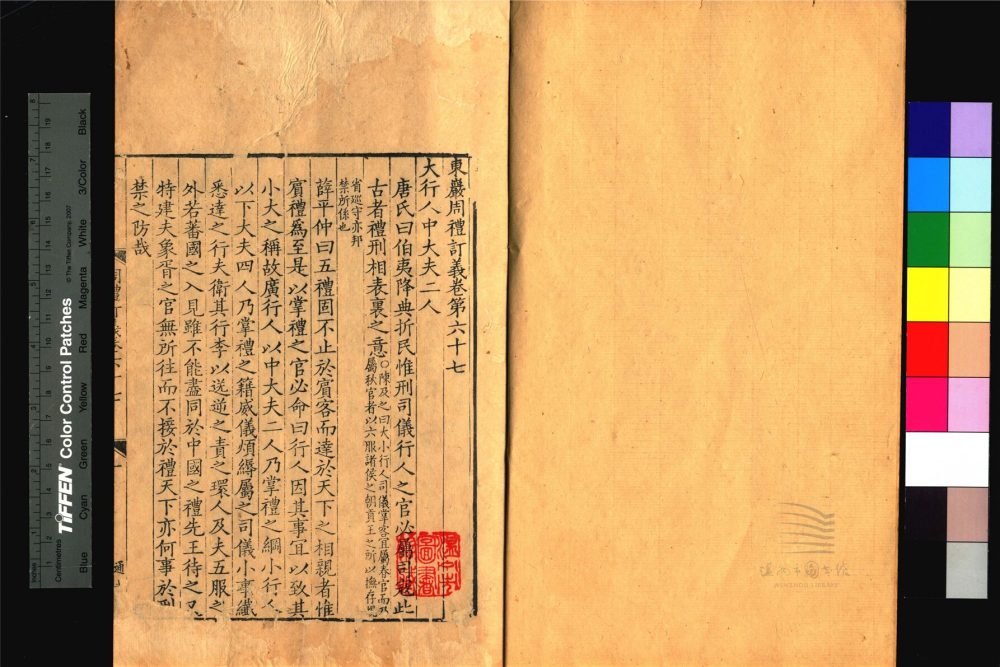 東巖周禮訂義卷第六十七
大行人中大夫二人
唐氏曰伯夷降典折民惟刑司儀行人之官必屬司寇此
古者禮刑相表裏之意○陳及之曰大小行人司儀掌客宜屬春官而乃
屬秋官者以六服諸侯之朝貢王之所以撫存
省巡守亦邦
禁所係也
薛平仲曰五禮固不止於賓客而達於天下之相親者惟
賓禮爲至是以掌禮之官必命曰行人因其事宜以致其
小大之稱故廣行人以中大夫二人乃掌禮之綱小行人
以下大夫四人乃掌禮之籍威儀煩縟屬之司儀小事纖
悉達之行夫衛其行李以送逆之責之環人及夫五服之
外若蕃國之入見雖不能盡同於中國之禮先王待之又
特建夫象胥之官無所往而不接於禮天下亦何事於刑
禁之防哉
TIFFEN Color Control Patches
© The Tiffen Company, 2007
Centimetres
Inches
Blue
Cyan
Green
Yellow
Red
Magenta
White
3/Color
Black
温州市图书馆
WENZHOU LIBRARY